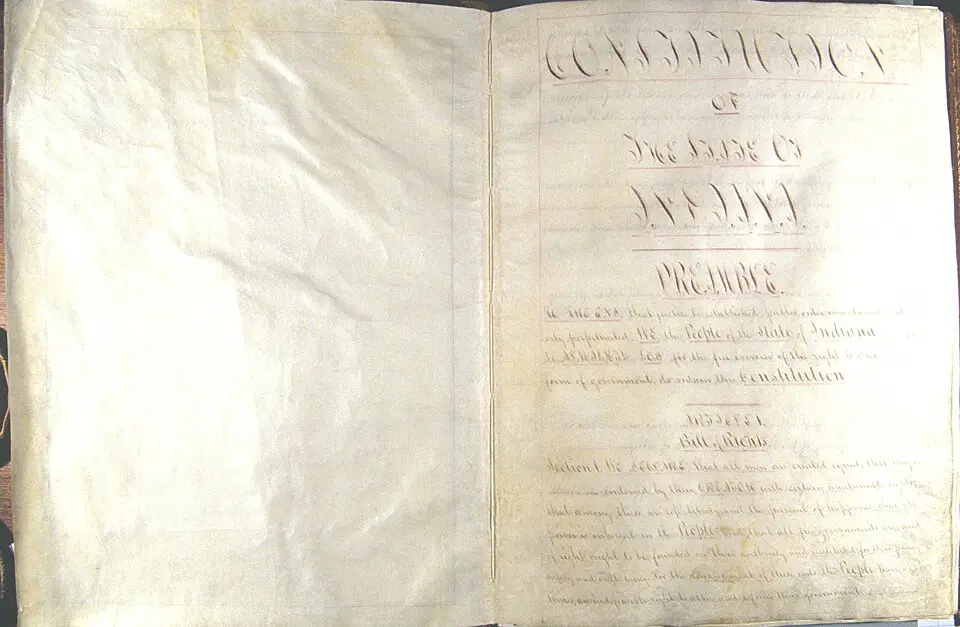 CONSTITUTION
OF
THE STATE OF
INDIANA.
PREAMBLE.
TO THE END, that justice be established, public order maintained, and
perpetuated, WE the People of the State of Indiana
to ALMIGHTY GOD for the free exercise of the right to
form of government, do ordain this Constitution
ARTICLE 1.
Bill of Rights.
Section 1. WE DECLARE, That all men are created equal; that they
endowed by their CREATOR with certain unalienable rights
that among these are life, liberty, and the pursuit of happiness; that all
power is inherent in the People; and that all free governments are, and
of right ought to be, founded on their authority, and instituted for their peace,
safety, and well being. For the advancement of these ends, the People have, at all
times, an indefeasible right to alter and reform their government.